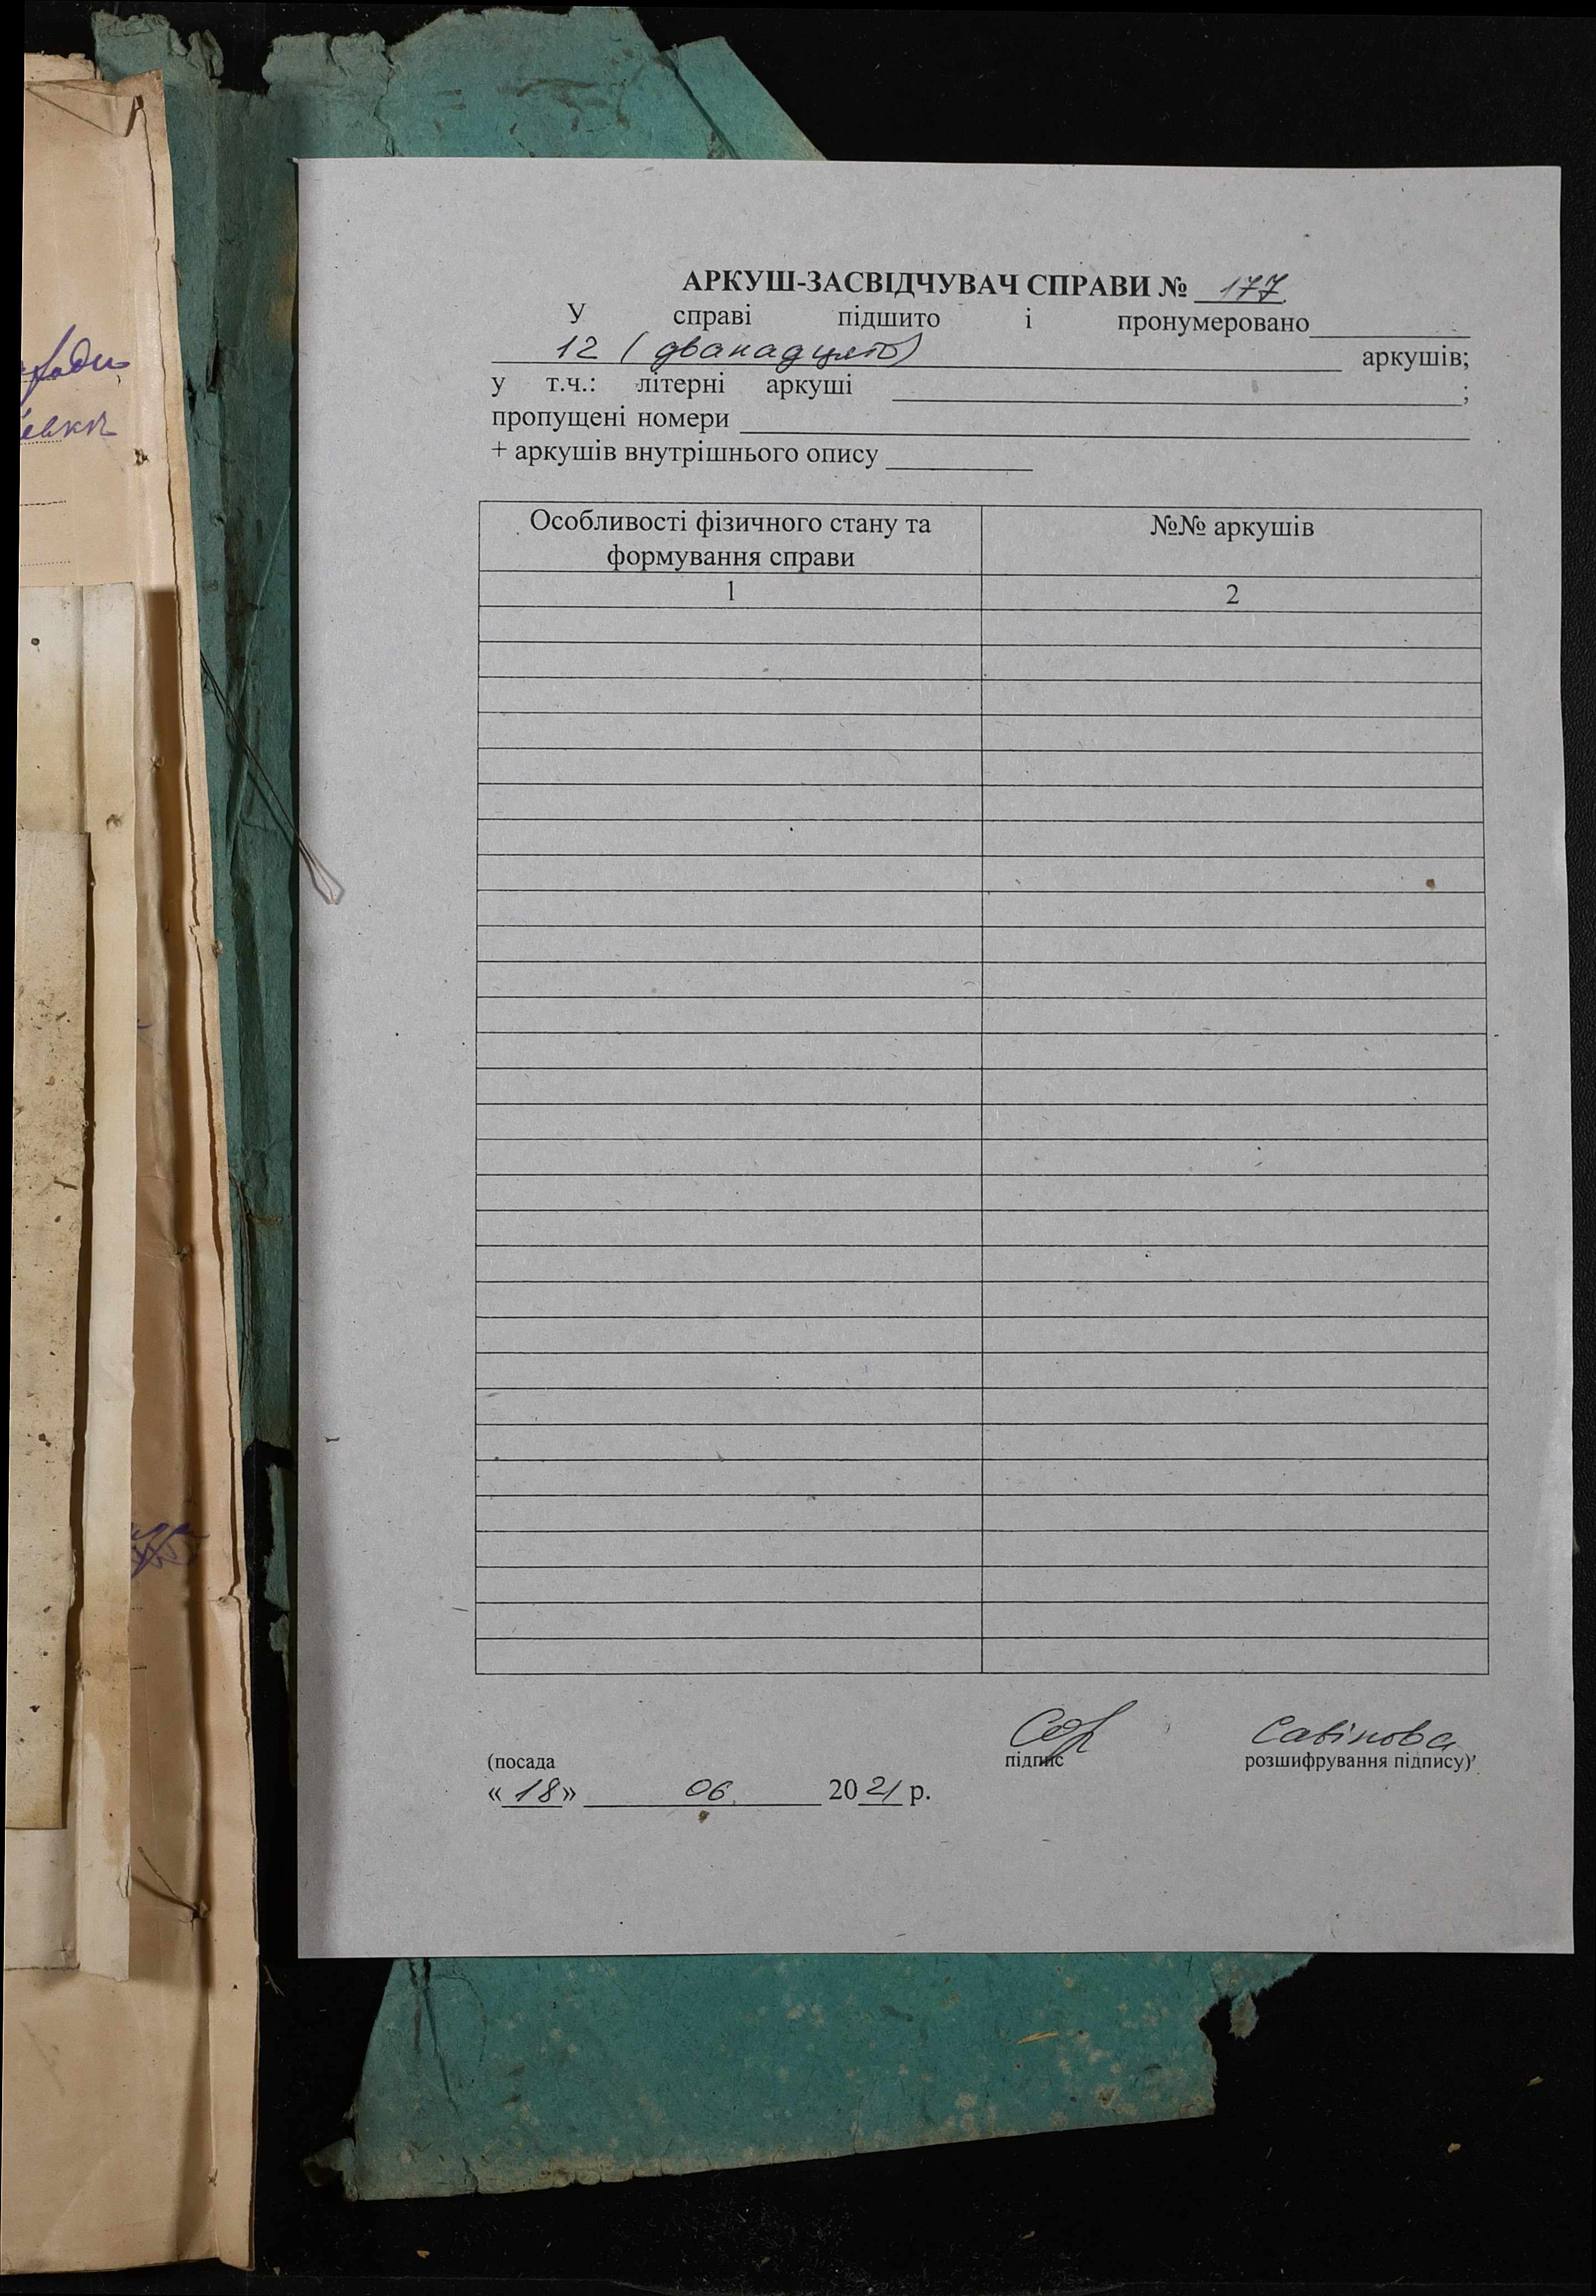 АРКУШ-ЗАСВІДЧУВАЧ СПРАВИ № 177
У справі підшито і пронумеровано
12 (дванадцять) аркушів;
у т.ч.: літерні аркуші ;
пропущені номери
+ аркушів внутрішнього опису
Особливості фізичного стану та формування справи
№№ аркушів
1 2
Савінова
(посада підпис розшифрування підпису)
«18» 06. 2021 р.